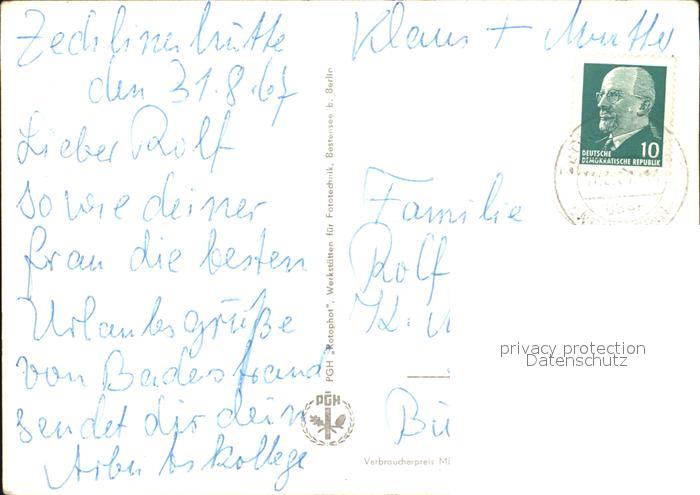 Zechlinerhütte
den 31.8.67
Lieber Rolf
sowie deiner
Frau die besten
Urlaubsgrüße
von Badestrand
sendet dir dein
Arbeitskollege
Klaus + Mutter
PGH „Rotophot", Werkstätten für Fototechnik, Bestensee b. Berlin
PGH
10
DEUTSCHE
DEMOKRATISCHE REPUBLIK
Familie
Rolf
Bü
Verbraucherpreis MI
privacy protection
Datenschutz